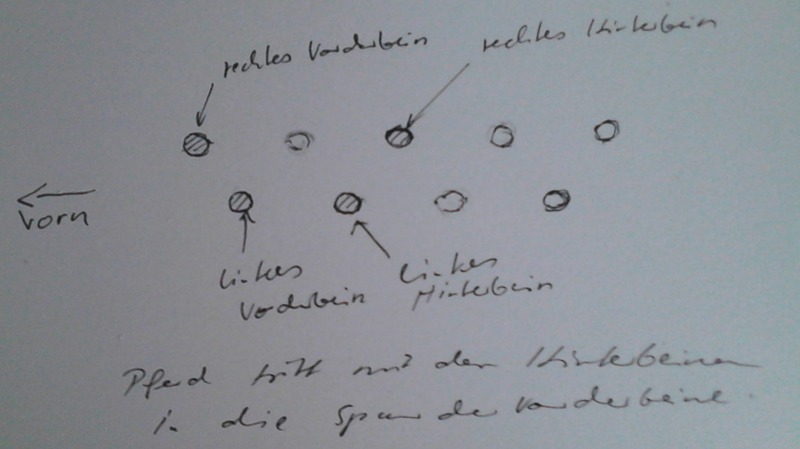 rechtes Vorderbein
rechtes Hinterbein
Vorn
linkes
Vorderbein
linkes
Hinterbein
Pferd tritt mit den Hinterbeinen
in die Spur der Vorderbeine.